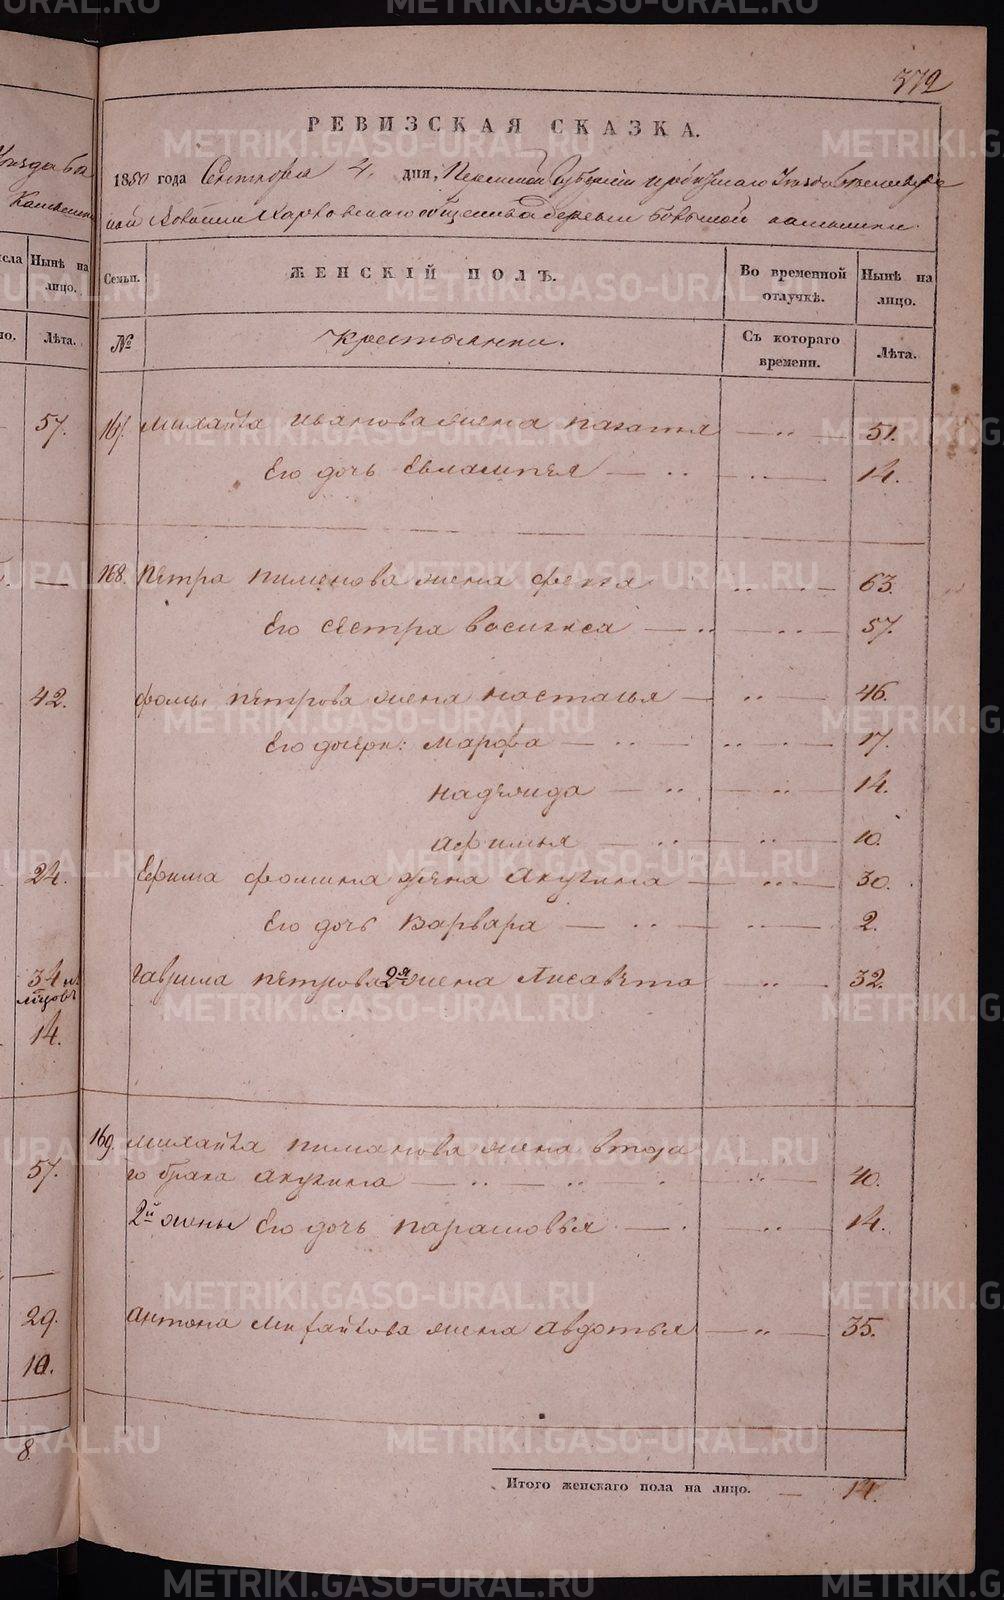 572
РЕВИЗСКАЯ СКАЗКА.
1850 года Сентября 4. дня, Пермской Губернии Ирбитскаго Уезда
ской Волости Харковскаго общества деревни Бовыкой
Семьи. ЖЕНСКІЙ ПОЛЪ. Во временной отлучкѣ. Нынѣ на лицо.
№ Крестьянки. Съ котораго времени. Лѣта.
Нынѣ на лицо.
Лѣта.
57. 167. михайла иванова жена пагатья — 51.
Его дочь Евлампья — 14.
— 168. Петра пименова жена фекла 63.
Его сестра васигиса — 57.
42. фомы петрова жена настасья — 46.
Его дочери: марфа — 17.
надежида — 14.
афимья — 10.
24. Ефима фомина жена акулина — 30.
Его дочь варвара — 2.
34 гаврила петрова 2я жена Лисавета — 32.
14.
169. михайла пиманова жена втора
57. го брака акулина — 40.
2й жены Его дочь парасковья — 14.
29. антона михайлова жена авдотья — 35.
10.
8.
Итого женскаго пола на лицо. — 14.
METRIKI.GASO-URAL.RU